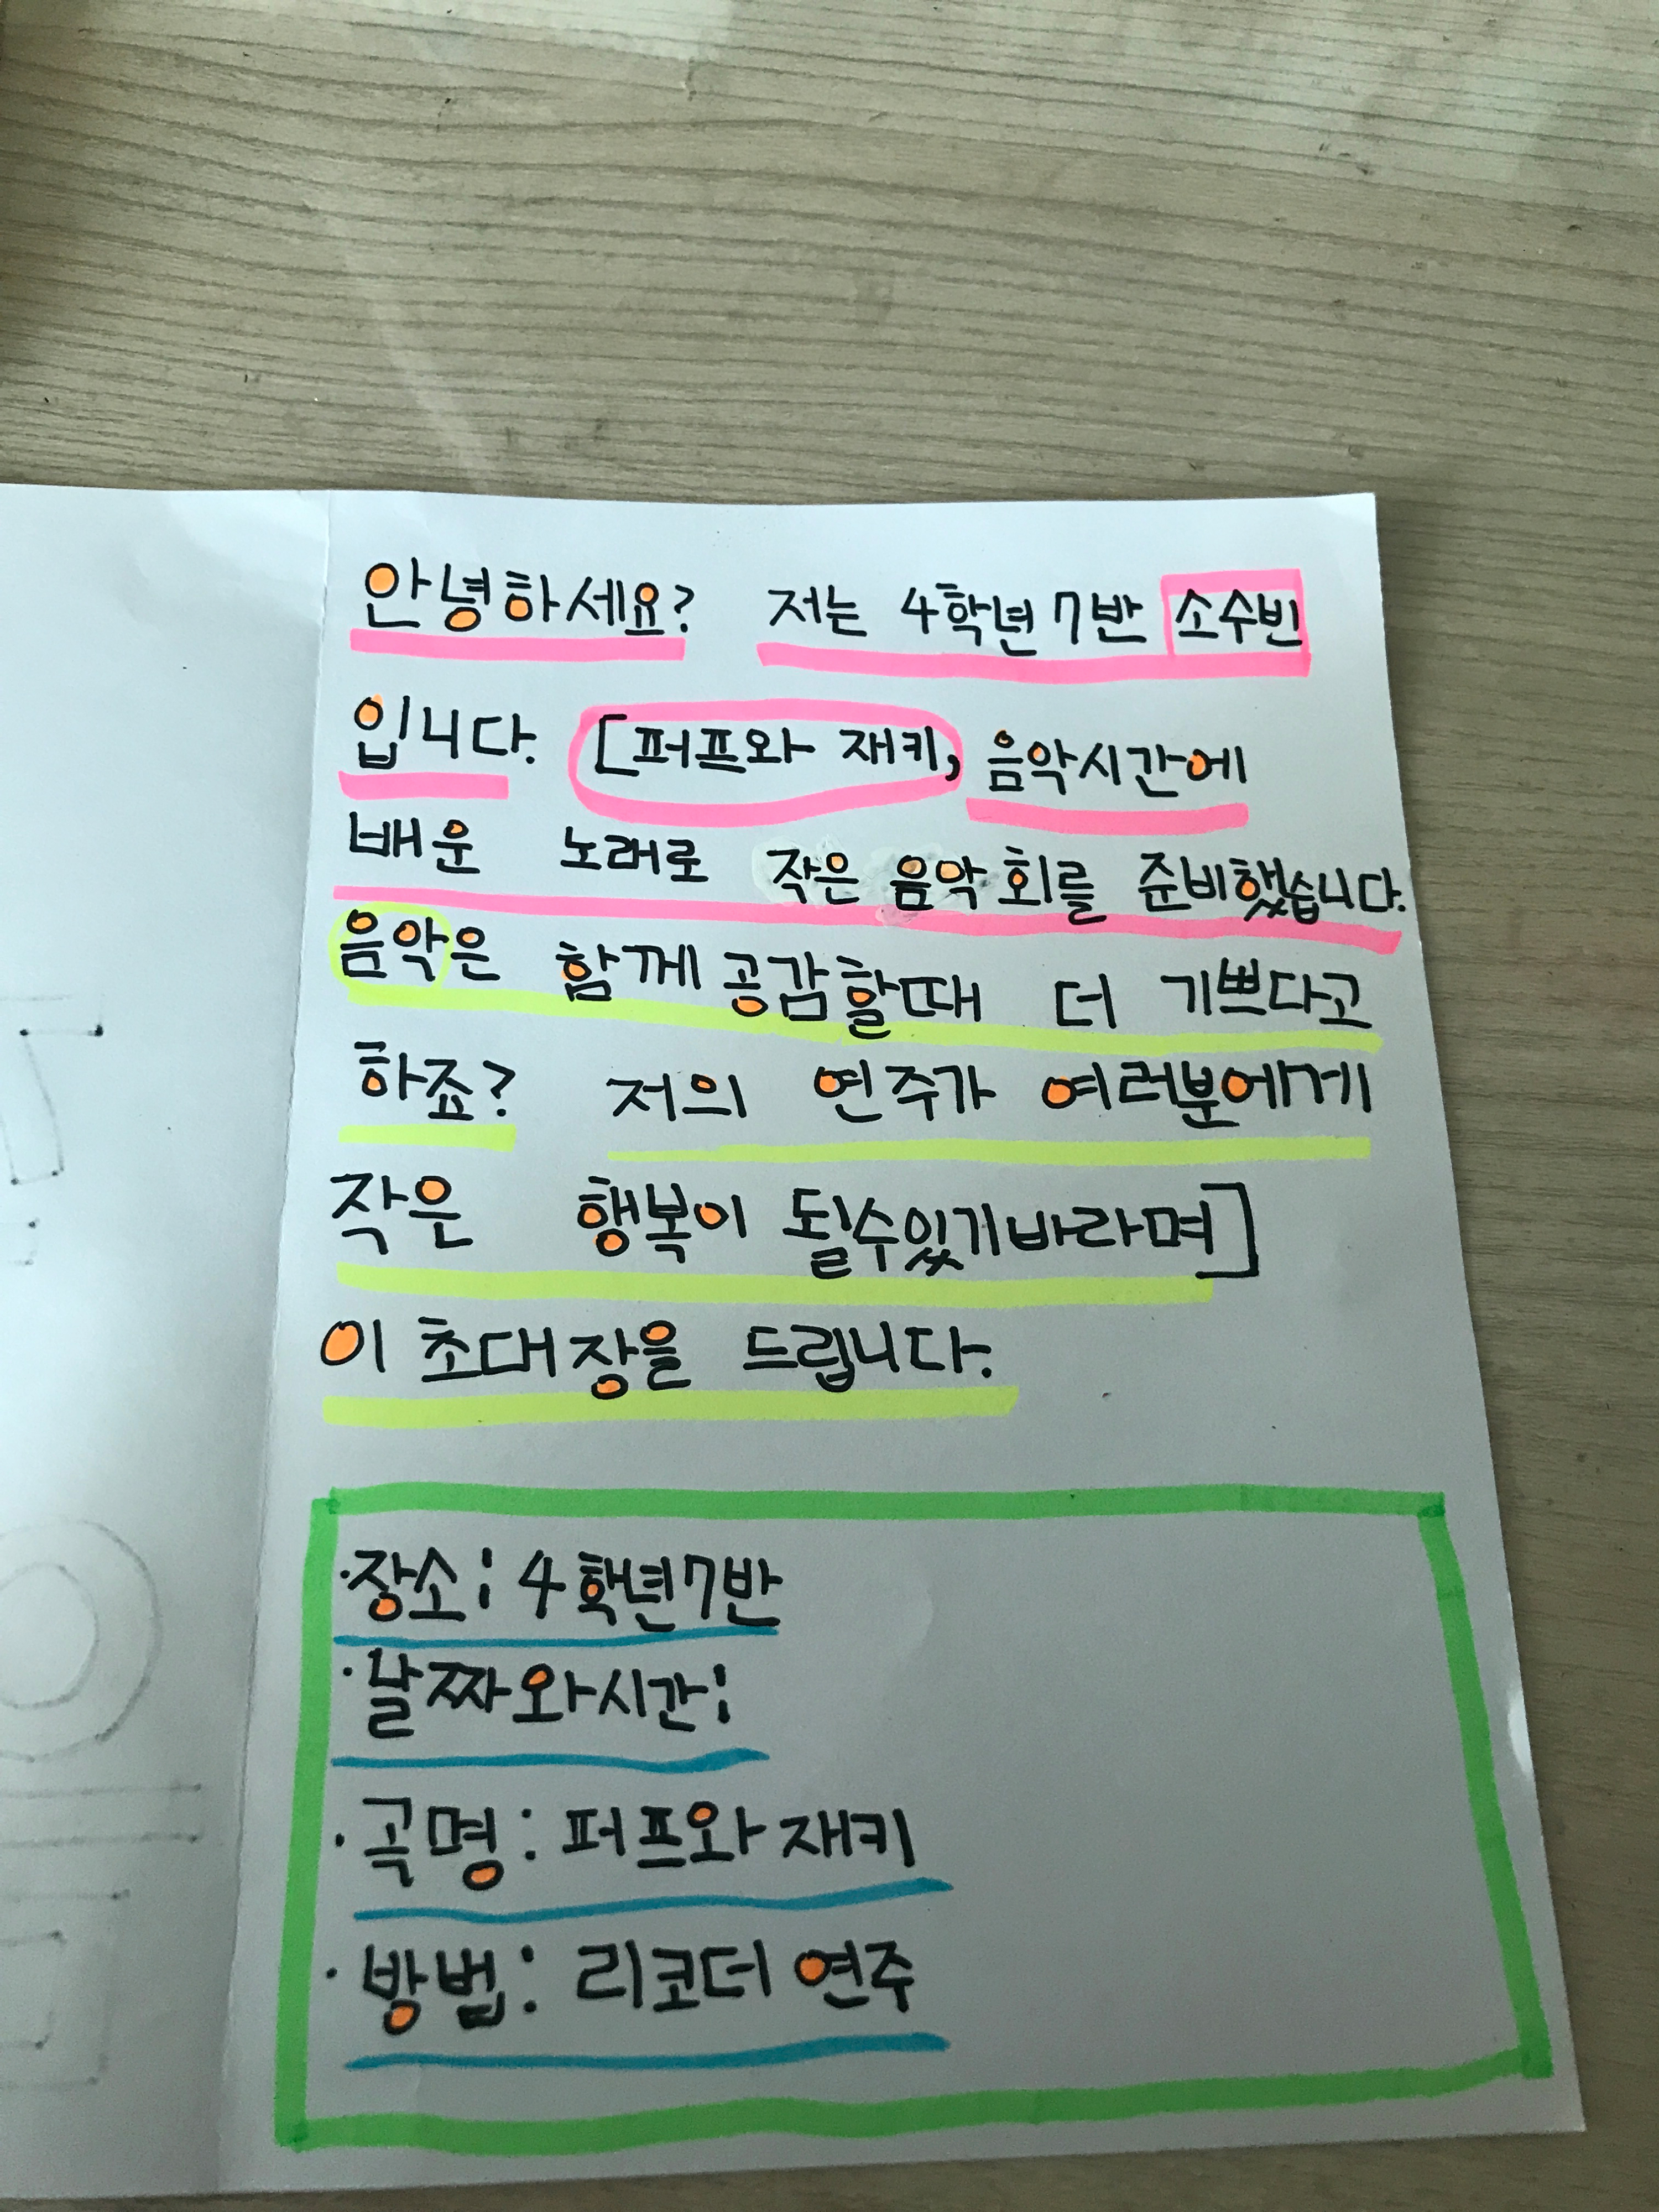 안녕하세요? 저는 4학년 7반 소수빈
입니다. [퍼프와 재키, 음악시간에
배운 노래로 작은 음악회를 준비했습니다.
음악은 함께 공감할때 더 기쁘다고
하죠? 저의 연주가 여러분에게
작은 행복이 될수있기바라며]
이 초대장을 드립니다.
·장소: 4학년7반
·날짜와시간:
·곡명: 퍼프와 재키
·방법: 리코더 연주